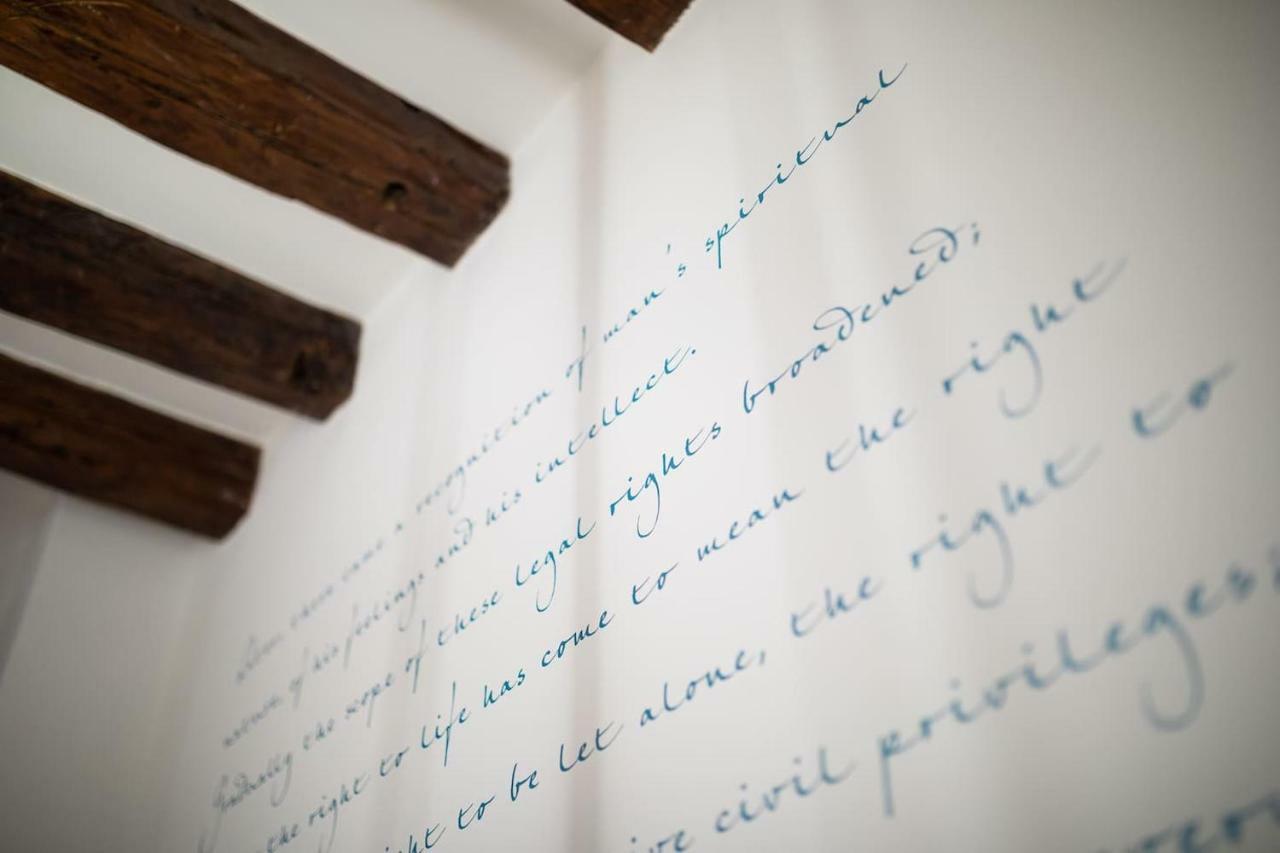 there came a recognition of man's spiritual
nature, of his feelings and his intellect.
Gradually the scope of these legal rights broadened;
the right to life has come to mean the right
to be let alone, the right to
civil privileges;